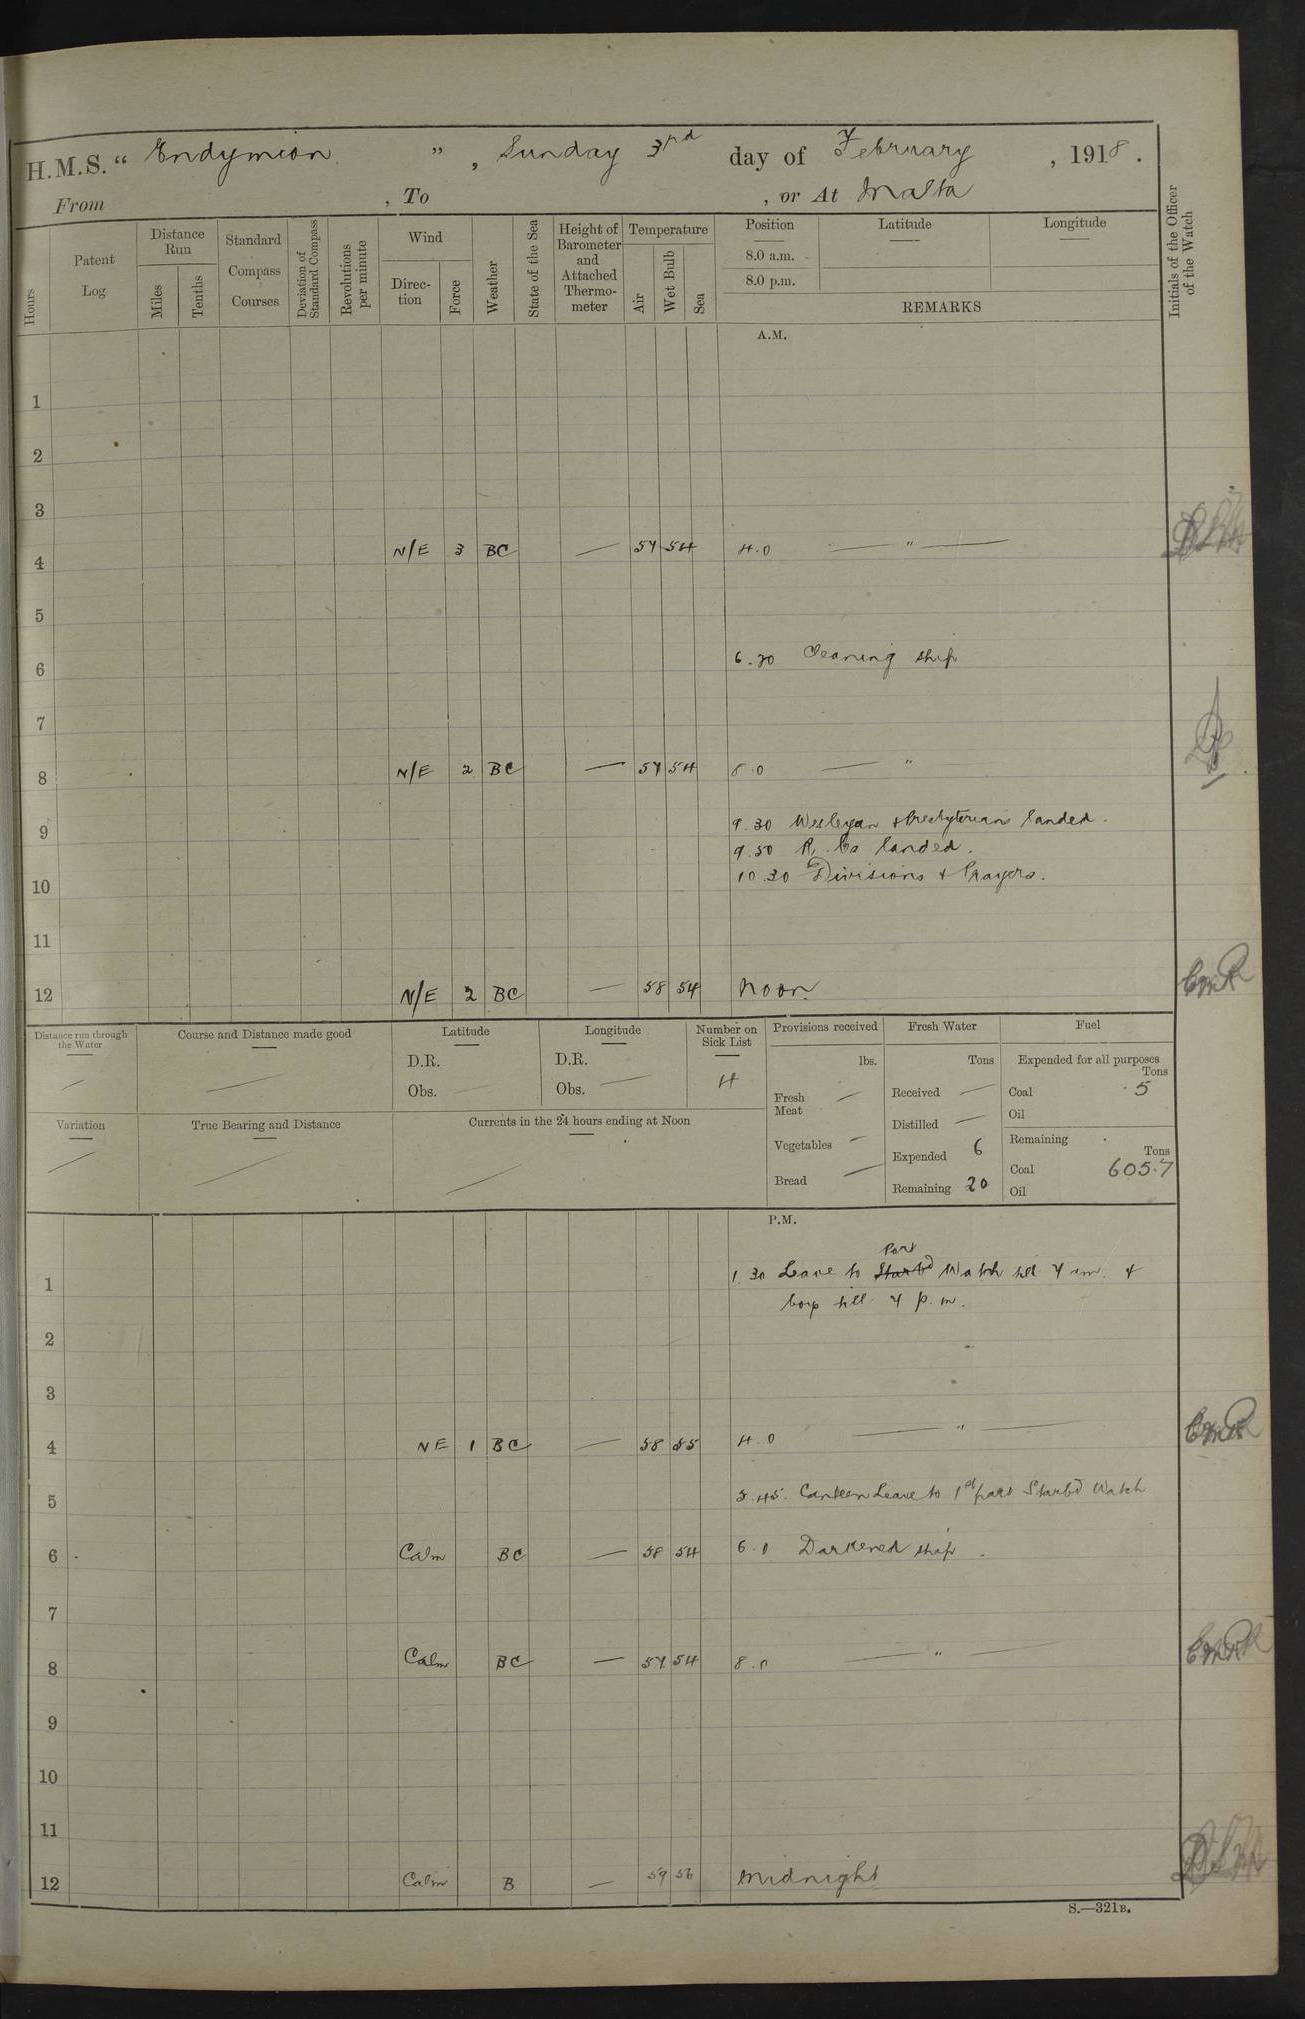 H.M.S. “ Endymion ” , Sunday 3rd day of February , 1918 .
From , To , or At Malta
Hours
Patent Log
Distance Run
Miles
Tenths
Standard Compass Courses
Deviation of Standard Compass
Revolutions per minute
Wind
Direc- tion
Force
Weather
State of the Sea
Height of Barometer and Attached Thermo- meter
Temperature
Air
Wet Bulb
Sea
Position
8.0 a.m.
8.0 p.m.
Latitude
Longitude
REMARKS
Initials of the Officer of the Watch
A.M.
1
2
3
4 N/E 3 BC — 57 54 4.0 — " —
5
6 6.30 Cleaning ship
7
8 N/E 2 BC — 57 54 8.0 — "
9 9.30 Wesleyan + Presbyterians landed.
9.50 R. Cs landed.
10 10.30 Divisions + Prayers.
11
12 N/E 2 BC — 58 54 Noon CMR
Distance run through the Water
—
Course and Distance made good
—
Latitude
D.R.
Obs.
Longitude
D.R.
Obs. —
Number on Sick List
4
Provisions received
lbs.
Fresh Meat —
Vegetables —
Bread —
Fresh Water
Tons
Received —
Distilled —
Expended 6
Remaining 20
Fuel
Expended for all purposes
Tons
Coal 5
Oil
Remaining
Tons
Coal 605.7
Oil
Variation
—
True Bearing and Distance
—
Currents in the 24 hours ending at Noon
—
P.M.
Port
1 1.30 Leave to Starbd Watch till 7 am. +
boys till 7 p.m.
2
3
4 NE 1 BC — 58 55 4.0 — " — CMR
5 5.45. Canteen Leave to 1st part Starbd Watch
6 Calm BC — 58 54 6.0 Darkened ship .
7
8 Calm BC — 57 54 8.0 — " — CMR
9
10
11
12 Calm B — 59 56 Midnight
S.—321B.